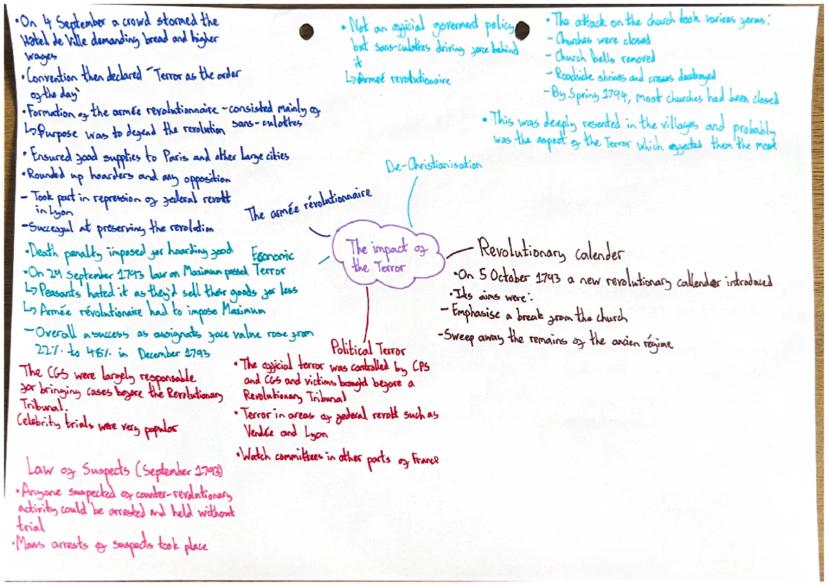 •On 4 September a crowd stormed the
Hôtel de Ville demanding bread and higher
wages
•Convention then declared "Terror as the order
of the day"
•Formation of the armée revolutionnaire - consisted mainly of
↳Purpose was to defend the revolution sans-culottes
•Ensured food supplies to Paris and other large cities
•Rounded up hoarders and any opposition
- Took part in repression of federal revolt
in Lyon
-Successful at preserving the revolution
The armée révolutionnaire
• Not an official goverment policy
but sans-culottes driving force behind
it
↳Armée revolutionaire
• The attack on the church took various forms:
- Churches were closed
- Church bells removed
- Roadside shrines and crosses destroyed
- By Spring 1794, most churches had been closed
• This was deeply resented in the villages and probably
was the aspect of the Terror which effected them the most
De-Christianisation
The impact of
the Terror
Economic
Terror
•Death penalty imposed for hoarding food
•On 29 September 1793 law on Maximum passed
↳Peasants hated it as they'd sell their goods for less
↳Armée révolutionaire had to impose Maximum
- Overall a success as assignats face value rose from
22% to 48% in December 1793
Revolutionary calender
•On 5 October 1793 a new revolutionary callender introduced
•Its aims were:
- Emphasise a break from the church
-Sweep away the remains of the ancien régime
Political Terror
•The official terror was controlled by CPS
and CGS and victims brought before a
Revolutionary Tribunal
•Terror in areas of federal revolt such as
Vendée and Lyon
•Watch committees in other parts of France
The CGS were largely responsable
for bringing cases before the Revolutionary
Tribunal.
Celebrity trials were very popular
Law of Suspects (September 1793)
•Anyone suspected of counter-revolutionary
activity could be arrested and held without
trial
•Mass arrests of suspects took place